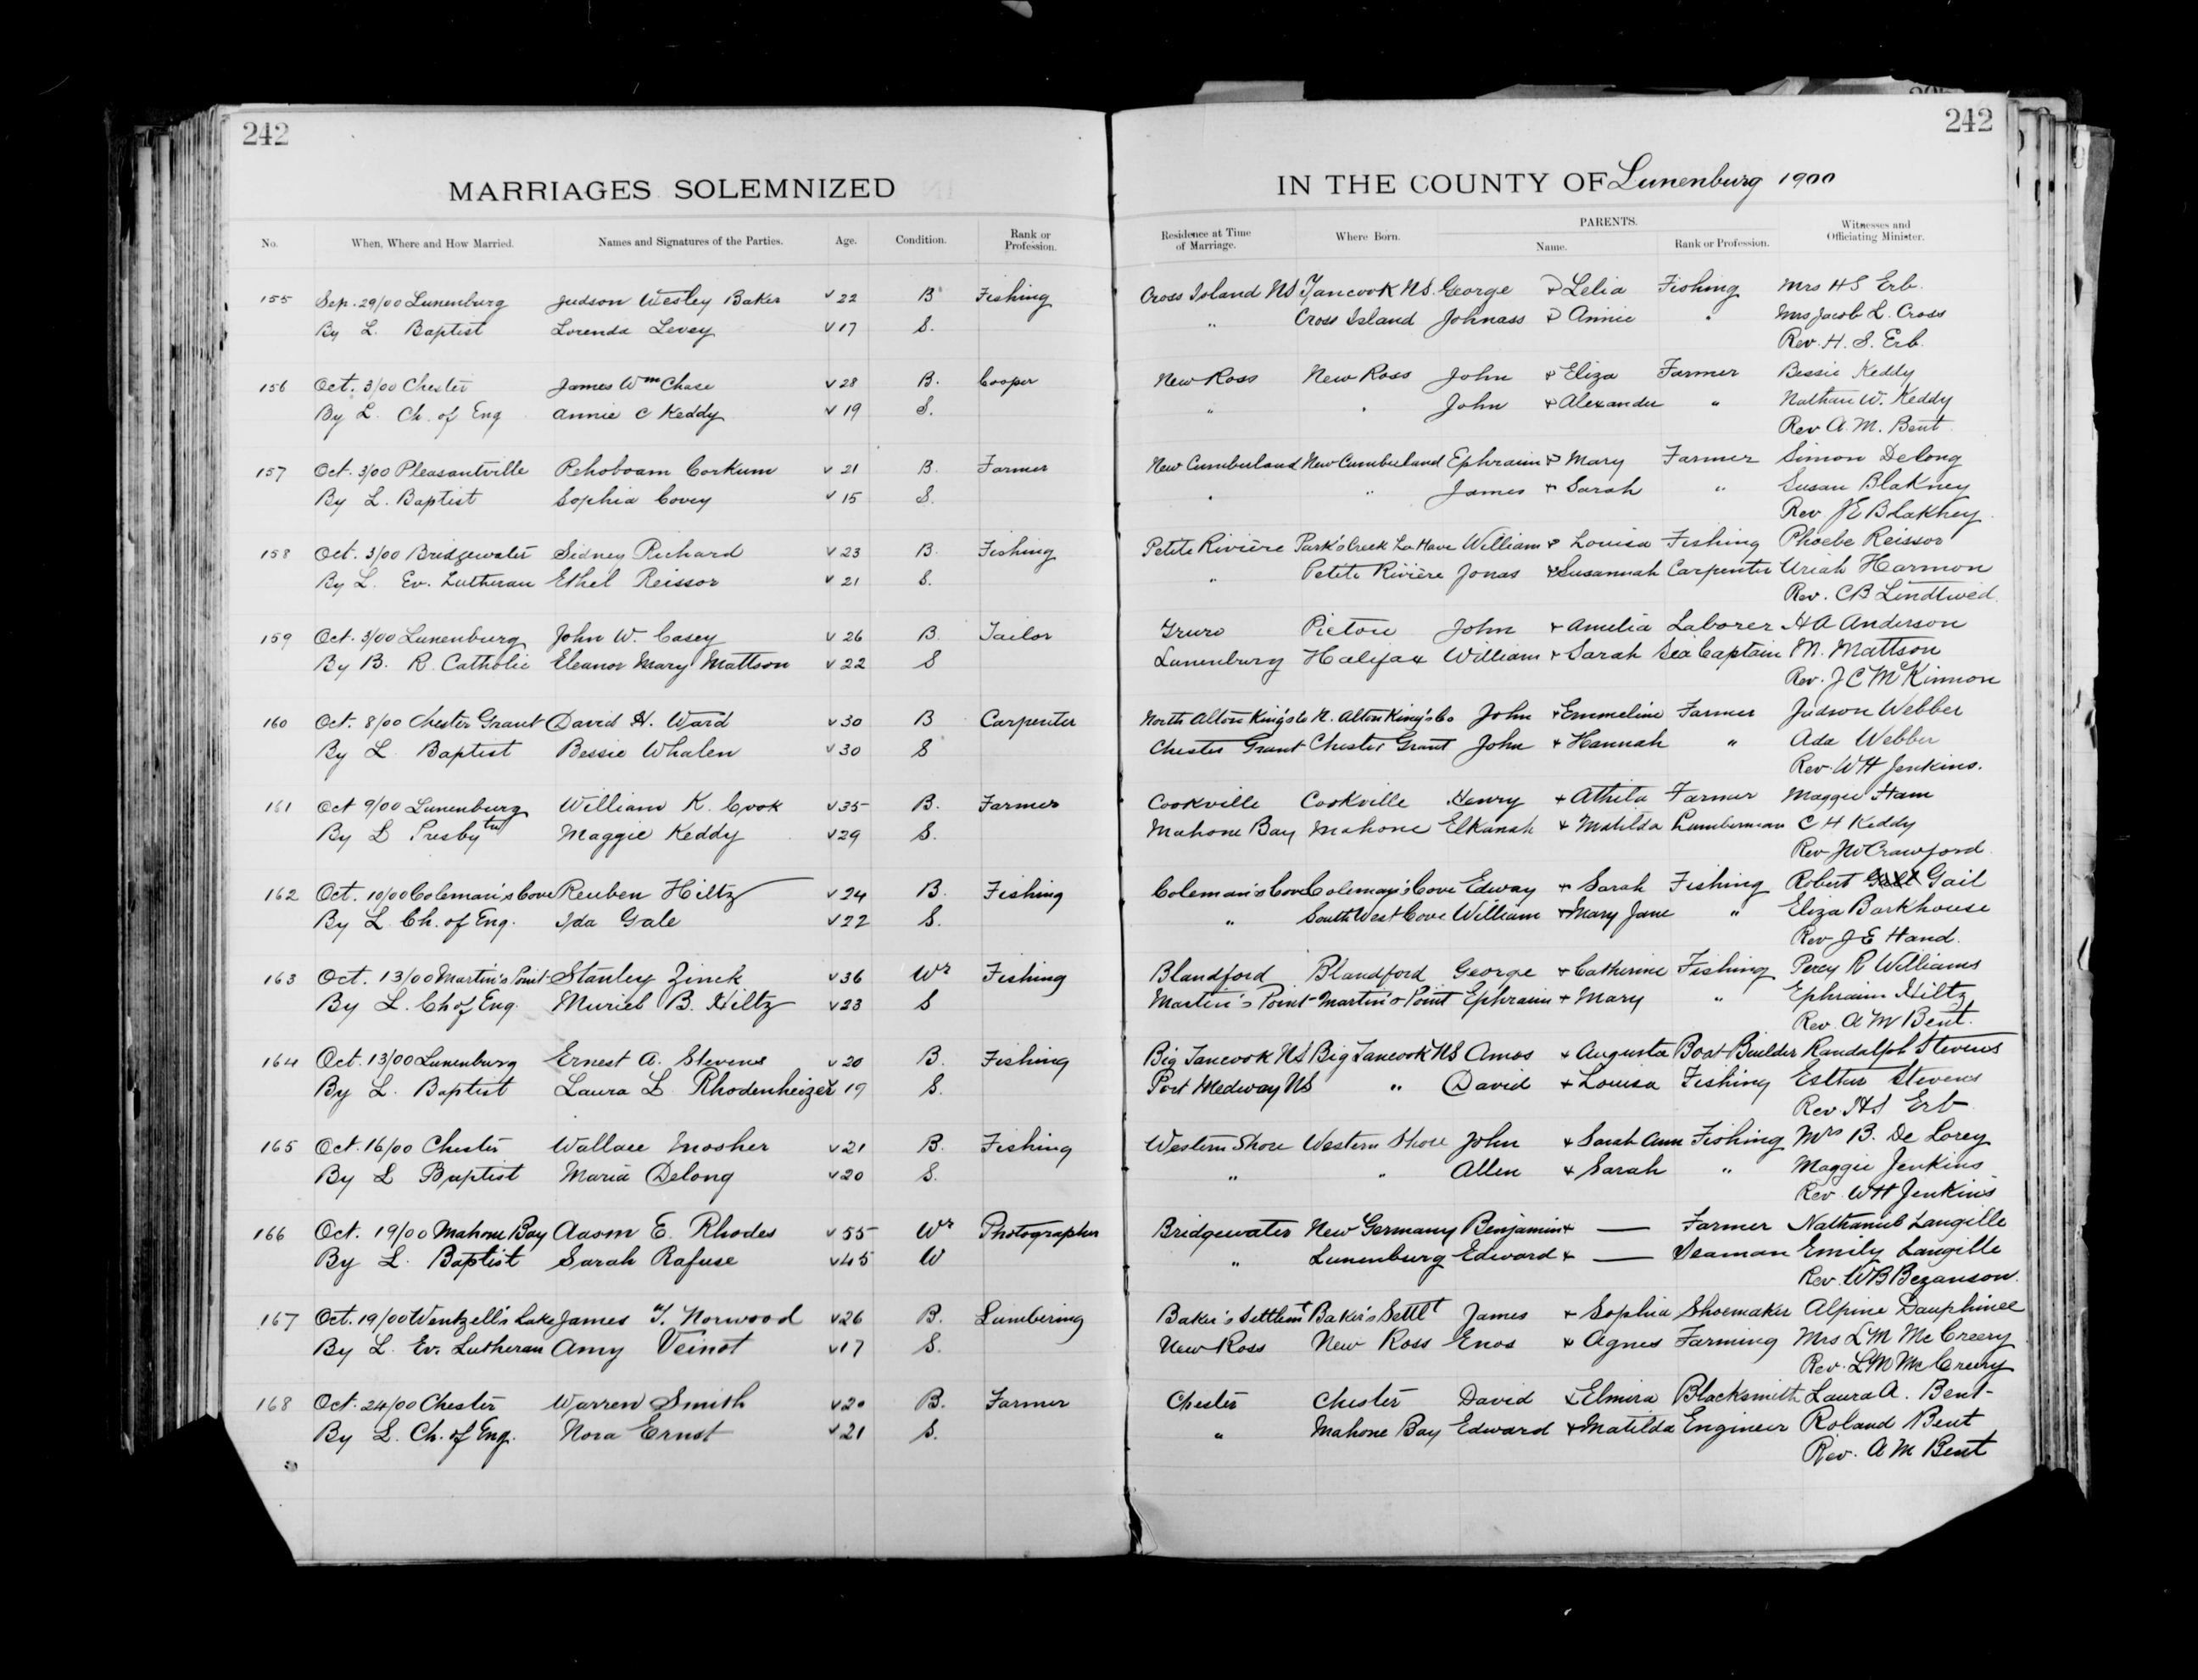 242
242
MARRIAGES SOLEMNIZED IN THE COUNTY OF Lunenburg 1900
No. When, Where and How Married. Names and Signatures of the Parties. Age. Condition. Rank or Profession. Residence at Time of Marriage. Where Born. PARENTS. Name. Rank or Profession. Witnesses and Officiating Minister.
155 Sep. 29/00 Lunenburg Judson Wesley Baker v 22 B Fishing Cross Island NS Tancook NS. George & Lelia Fishing Mrs H S Erb.
By L. Baptist Lorenda Levey v 17 S. " Cross Island Johnass & Annie " Mrs Jacob L. Cross
Rev. H. S. Erb.
156 Oct. 3/00 Chester James Wm Chase v 28 B. Cooper New Ross New Ross John & Eliza Farmer Bessie Keddy
By L. Ch. of Eng Annie C Keddy v 19 S. " " John & Alexander " Nathan W. Keddy
Rev A. M. Bent.
157 Oct. 3/00 Pleasantville Rehoboam Corkum v 21 B. Farmer New Cumberland New Cumberland Ephraim & Mary Farmer Simon Delong
By L. Baptist Sophia Covey v 15 S. " " James + Sarah " Susan Blakney
Rev. J E Blakney.
158 Oct. 3/00 Bridgewater Sidney Richard v 23 B. Fishing Petite Rivière Park's Creek La Have William & Louisa Fishing Phoebe Reissor
By L. Ev. Lutheran Ethel Reissor v 21 S. " Petite Rivière Jonas & Susannah Carpenter Uriah Harmon
Rev. C B Lindtwed.
159 Oct. 3/00 Lunenburg John W. Casey v 26 B. Tailor Truro Pictou John + Amelia Laborer H A Anderson
By B. R. Catholic Eleanor Mary Mattson v 22 S Lunenburg Halifax William + Sarah Sea Captain M. Mattson
Rev. J C McKinnon
160 Oct. 8/00 Chester Grant David H. Ward v 30 B Carpenter North Alton King's Co N. Alton King's Co John + Emmeline Farmer Judson Webber
By L Baptist Bessie Whalen v 30 S Chester Grant Chester Grant John + Hannah " Ada Webber
Rev. W H Jenkins.
161 Oct 9/00 Lunenburg William K. Cook v 35 B. Farmer Cookville Cookville Henry + Athila Farmer Maggie Ham
By L Presbytrn Maggie Keddy v 29 S. Mahone Bay Mahone Elkanah + Matilda Lumberman C H Keddy
Rev JW Crawford.
162 Oct. 10/00 Coleman's Cove Reuben Hiltz v 24 B. Fishing Coleman's Cove Coleman's Cove Edway + Sarah Fishing Robert Gail
By L. Ch. of Eng. Ida Gale v 22 S. " South West Cove William + Mary Jane " Eliza Barkhouse
Rev J E Hand.
163 Oct. 13/00 Martin's Point Stanley Zinck v 36 Wr Fishing Blandford Blandford George + Catherine Fishing Percy R Williams
By L. Ch of Eng. Muriel B. Hiltz v 23 S Martin's Point Martin's Point Ephraim + Mary " Ephraim Hiltz
Rev. A M Bent.
164 Oct. 13/00 Lunenburg Ernest A. Stevens v 20 B. Fishing Big Tancook NS Big Tancook NS Amos + Augusta Boat Builder Randalph Stevens
By L. Baptist Laura L. Rhodenheizer v 19 S. Port Medway NS " David + Louisa Fishing Esther Stevens
Rev. H S Erb
165 Oct. 16/00 Chester Wallace Mosher v 21 B. Fishing Western Shore Western Shore John + Sarah Ann Fishing Mrs B. De Lorey
By L Baptist Maria Delong v 20 S. " " Allen + Sarah " Maggie Jenkins
Rev. W H Jenkins
166 Oct. 19/00 Mahone Bay Aaron E. Rhodes v 55 Wr Photographer Bridgewater New Germany Benjamin + — Farmer Nathaniel Langille
By L. Baptist Sarah Rafuse v 45 W " Lunenburg Edward + — Seaman Emily Langille
Rev. W B Bezanson.
167 Oct. 19/00 Wentzell's Lake James Y. Norwood v 26 B. Lumbering Baker's Settlemt Baker's Settlt James + Sophia Shoemaker Alpine Dauphinee
By L. Ev. Lutheran Amy Veinot v 17 S. New Ross New Ross Enos + Agnes Farming Mrs L M McCreery
Rev. L M McCreery
168 Oct. 24/00 Chester Warren Smith v 20 B. Farmer Chester Chester David & Elmira Blacksmith Laura A. Bent
By L. Ch. of Eng. Nora Ernst v 21 S. " Mahone Bay Edward + Matilda Engineer Roland Bent
Rev. A M Bent